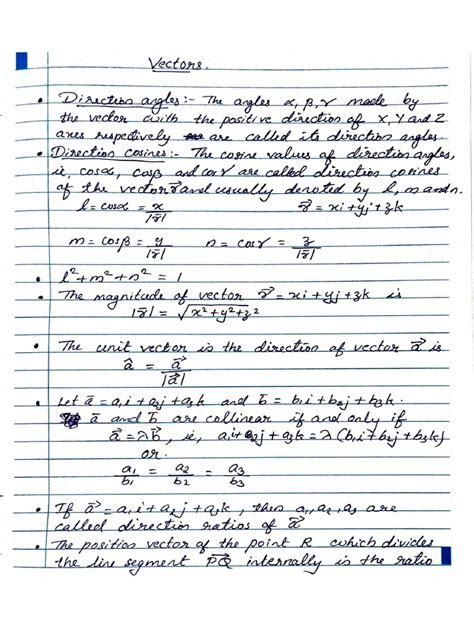 Vectors.
• Direction angles:- The angles α, β, γ made by
the vector with the positive direction of X, Y and Z
axes respectively are called its direction angles.
• Direction cosines:- The cosine values of direction angles,
ie, cosα, cosβ and cosγ are called direction cosines
of the vector r⃗ and usually denoted by l, m and n.
l = cosα = x/|r⃗| r⃗ = xi + yj + zk
m = cosβ = y/|r⃗| n = cosγ = z/|r⃗|
• l² + m² + n² = 1
• The magnitude of vector r⃗ = xi + yj + zk is
|r⃗| = √x² + y² + z²
• The unit vector is the direction of vector a⃗ is
â = a⃗/|a⃗|
• Let a⃗ = a₁i + a₂j + a₃k and b⃗ = b₁i + b₂j + b₃k.
a⃗ and b⃗ are collinear if and only if
a⃗ = λb⃗, ie, a₁i + a₂j + a₃k = λ(b₁i + b₂j + b₃k)
or.
a₁/b₁ = a₂/b₂ = a₃/b₃
• If a⃗ = a₁i + a₂j + a₃k, then a₁, a₂, a₃ are
called direction ratios of a⃗
• The position vector of the point R which divides
the line segment PQ⃗ internally is the ratio